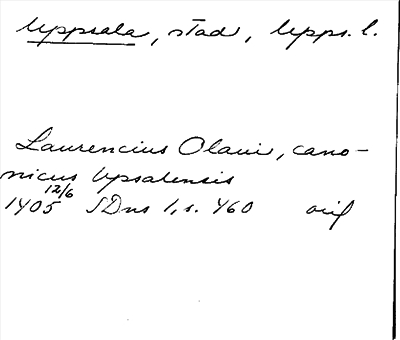 Uppsala, stad, Upps. l.
Laurencius Olaui, cano-
nicus Vpsalensis
1405 12/6 SDns 1, s. 460 orig